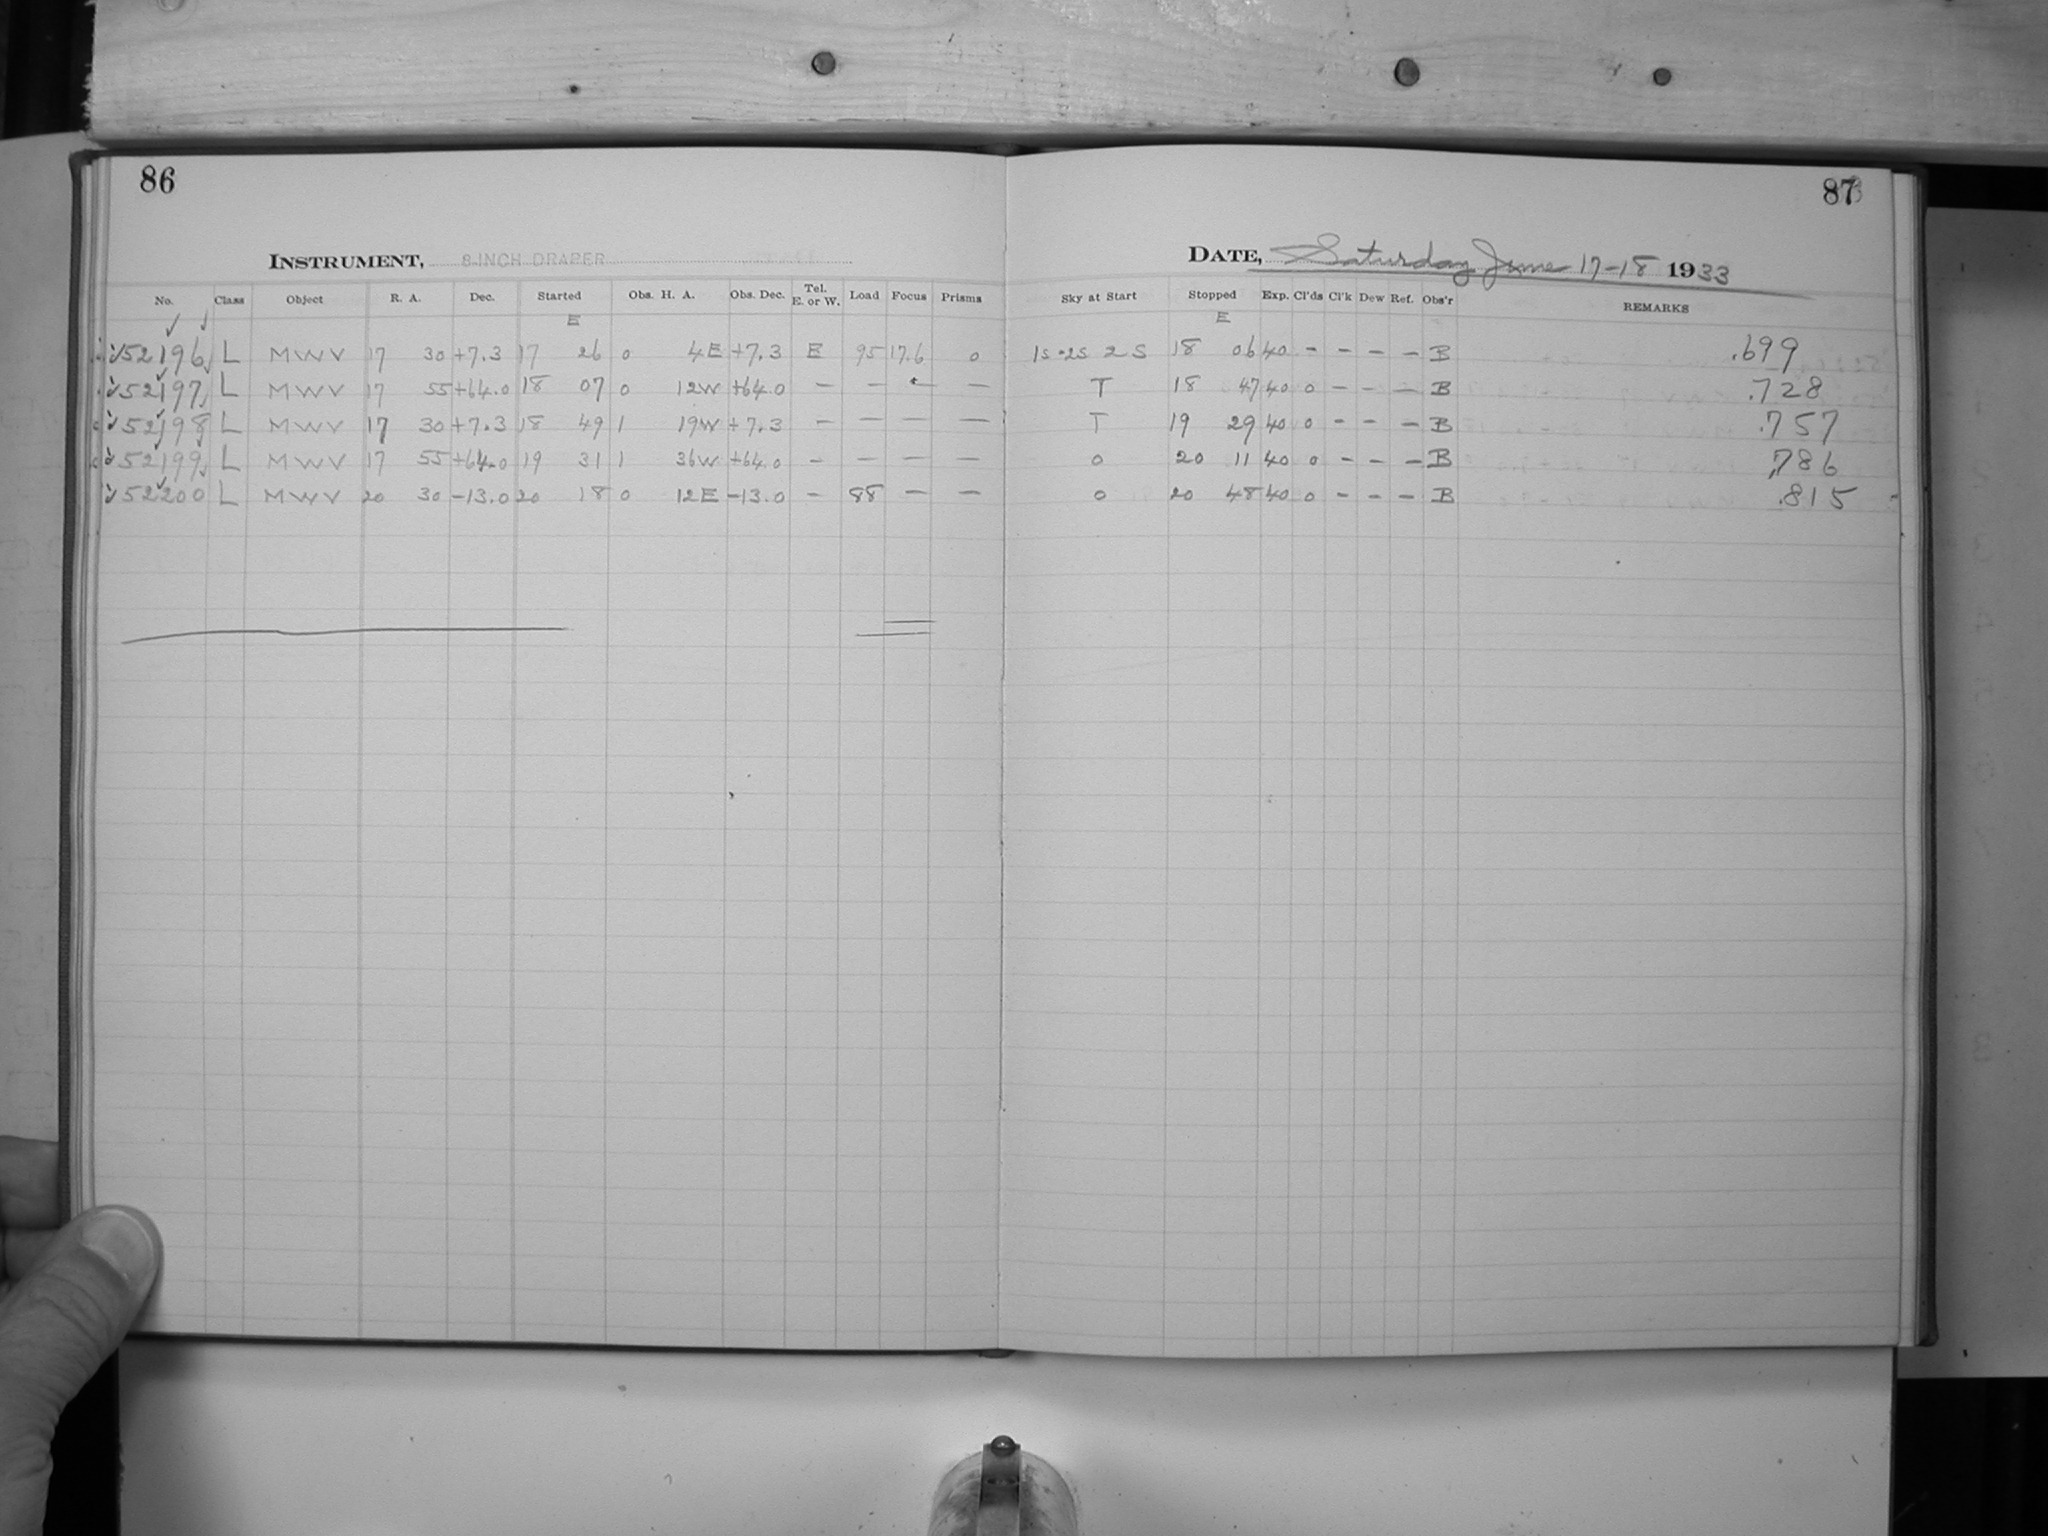 86
INSTRUMENT, 8-INCH DRAPER
No. Class Object R. A. Dec. Started Obs. H. A. Obs. Dec. Tel. E. or W. Load Focus Prisms
E
52196 L MWV 17 30 +7.3 17 26 0 4E +7.3 E 95 17.6 0
52197 L MWV 17 55 +64.0 18 07 0 12W +64.0 — — — —
52198 L MWV 17 30 +7.3 18 49 1 19W +7.3 — — — —
52199 L MWV 17 55 +64.0 19 31 1 36W +64.0 — — — —
52200 L MWV 20 30 -13.0 20 18 0 12E -13.0 — 88 — —
87
DATE, Saturday June 17-18 1933
Sky at Start Stopped Exp. Cl'ds Cl'k Dew Ref. Obs'r REMARKS
E
1s-2s 2S 18 06 40 - - - - B .699
T 18 47 40 0 - - - B .728
T 19 29 40 0 - - - B .757
0 20 11 40 0 - - - B .786
0 20 48 40 0 - - - B .815